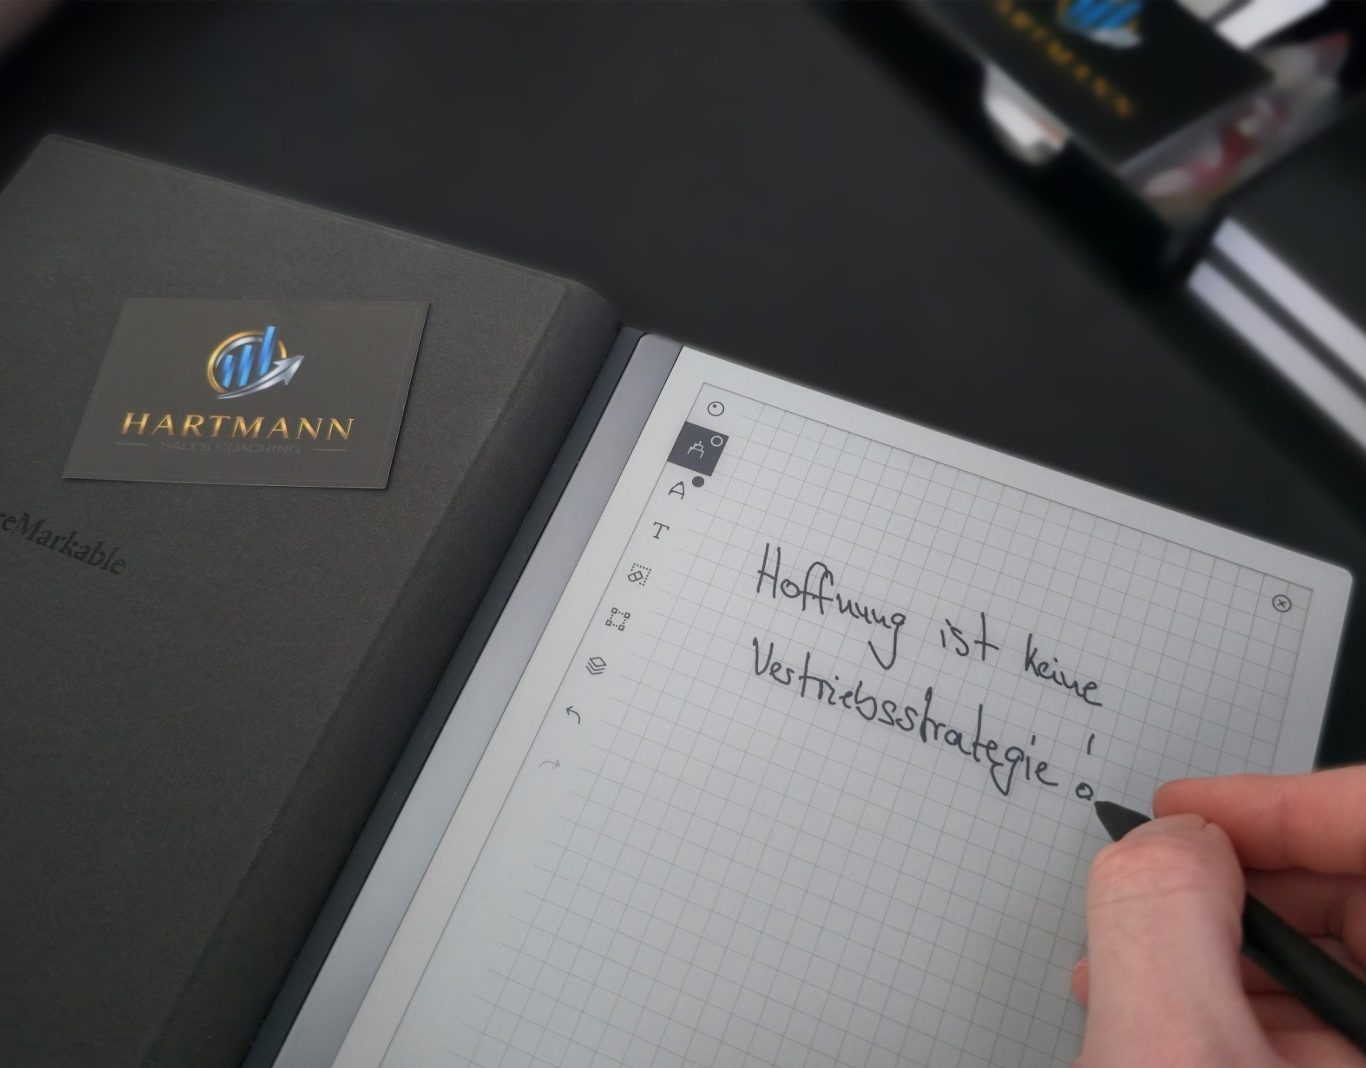 HARTMANN
HARTMANN
SALES COACHING
reMarkable
T
Hoffnung ist keine
Vertriebsstrategie!